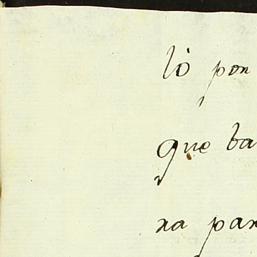 lò pon
que ba
na par